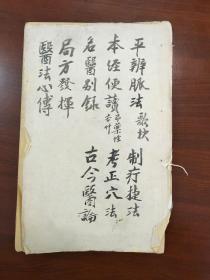 平辨脈法歌抉 制疗捷法
本經便讀 考正穴法
名醫别錄 古今醫論
局方發揮
醫法心傳